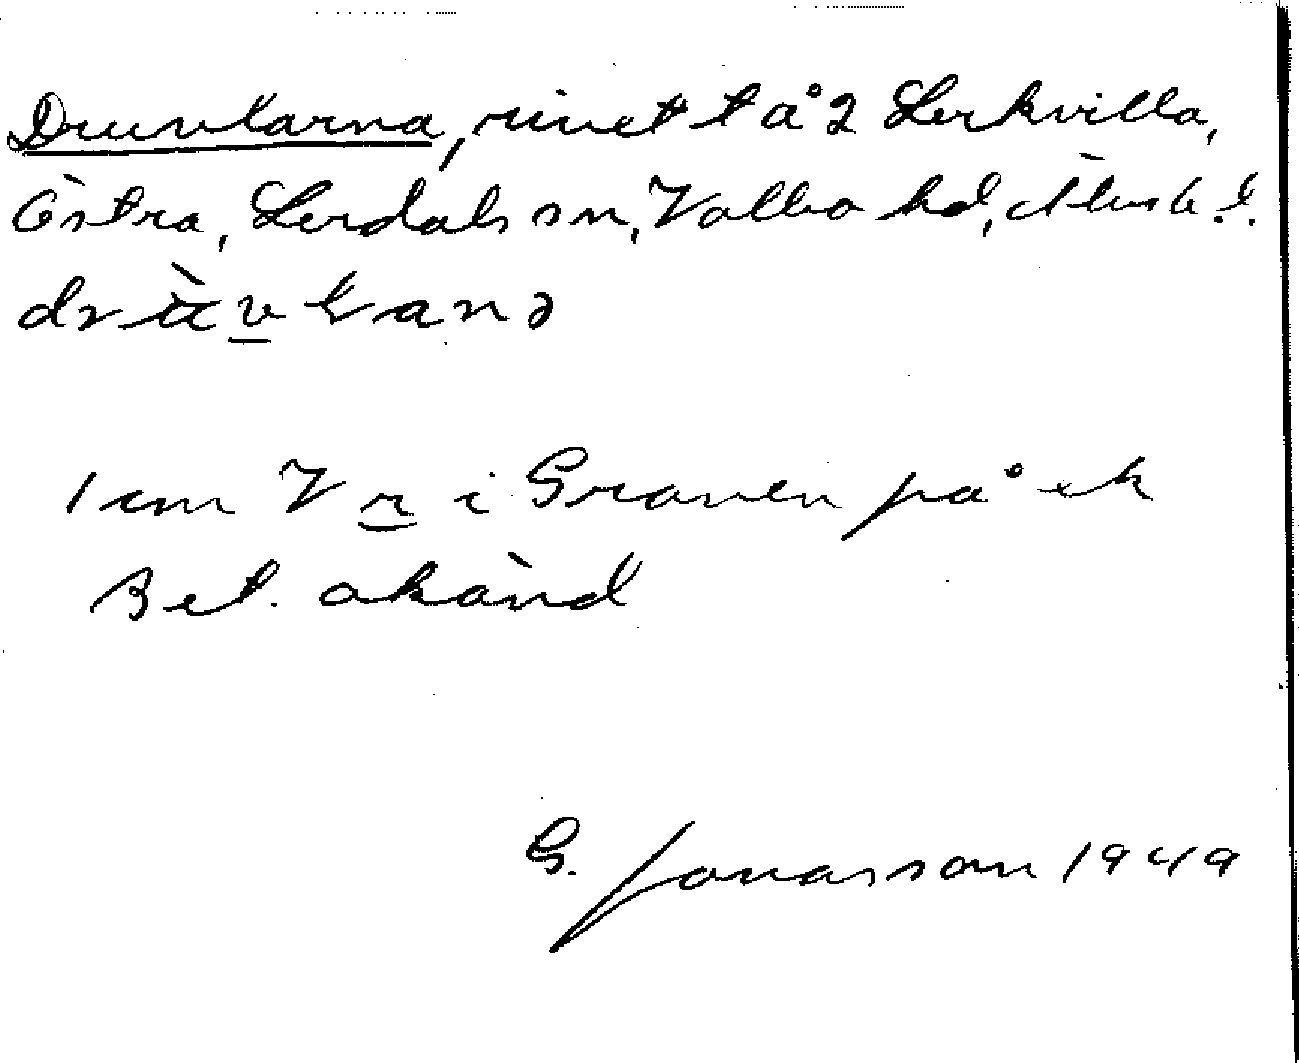 Druvlarna, rivet t å 2 Lerkvilla,
Östra, Lerdals sn, Valbo hd, Älvsb. l.
1 cm V i Graven på ek
Bet. okänd
G. Jonasson 1949